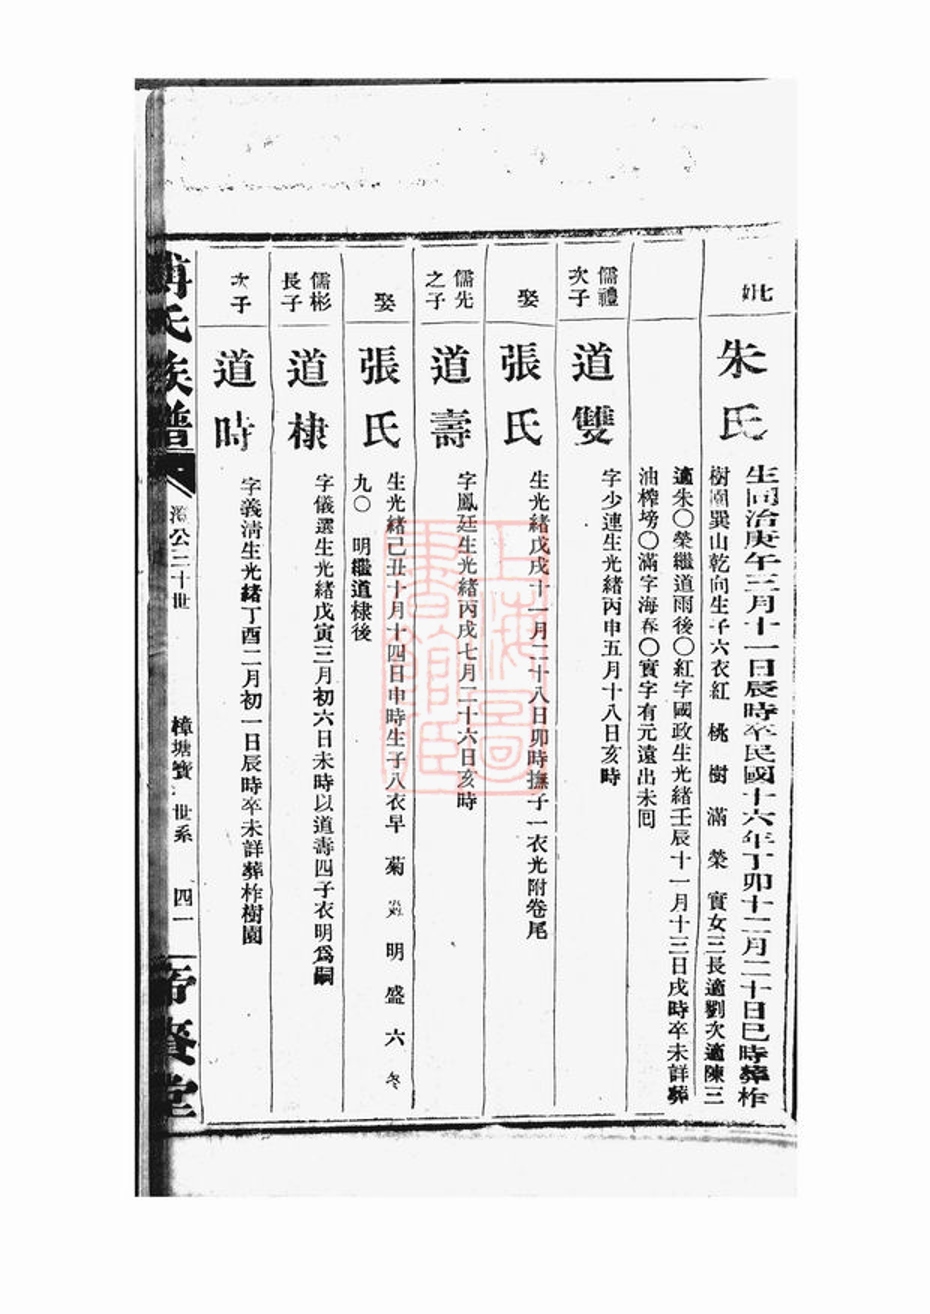 妣
朱氏
生同治庚午三月十一日辰時卒民國十六年丁卯十二月二十日巳時葬柞
樹園巽山乾向生子六衣紅 桃 樹 滿 榮 實女三長適劉次適陳三
適朱〇榮繼道雨後〇紅字國政生光緒壬辰十一月十三日戌時卒未詳葬
油榨塝〇滿字海春〇實字有元遠出未囘
儒禮
次子
道雙
字少連生光緒丙申五月十八日亥時
娶
張氏
生光緒戊戌十一月二十八日卯時撫子一衣光附卷尾
儒先
之子
道壽
字鳳廷生光緒丙戌七月二十六日亥時
娶
張氏
生光緒己丑十月十四日申時生子八衣早 菊 明 盛 六 冬
九〇 明繼道棣後
儒彬
長子
道棣
字儀選生光緒戊寅三月初六日未時以道壽四子衣明爲嗣
次子
道時
字義清生光緒丁酉二月初一日辰時卒未詳葬柞樹園
傅氏族譜
公三十世
樟塘寶 世系
四一
堂
上海圖書館藏